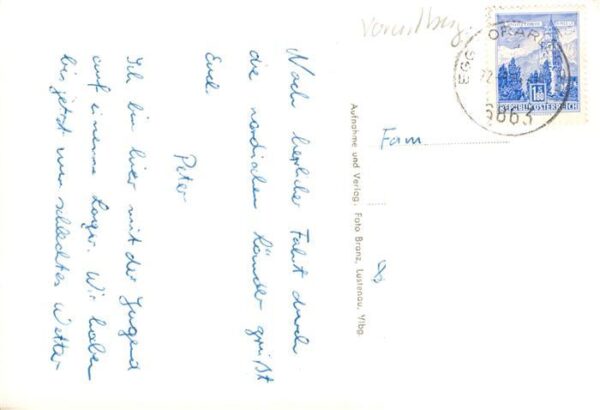 Nach herrlicher Fahrt durch
die nordischen Länder grüßt
Euch
Peter
Ich bin hier mit der Jugend
auf einem Lager. Wir haben
bis jetzt nur schlechtes Wetter
Vorarlberg
Fam
Aufnahme und Verlag: Foto Branz, Lustenau, Vlbg.
EGG
6863
1.80
REPUBLIK ÖSTERREICH